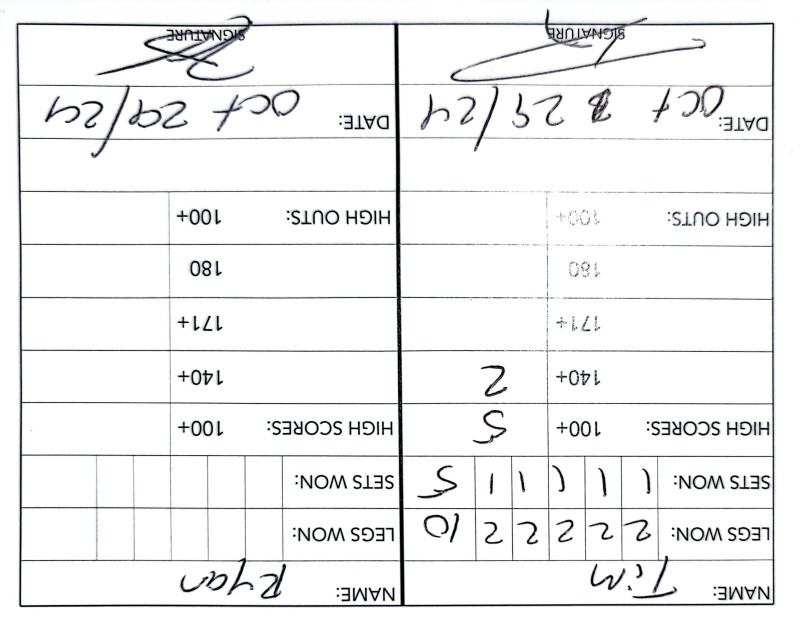 NAME: Tim
LEGS WON: 2 2 2 2 2 10
SETS WON: 1 1 1 1 1 5
HIGH SCORES: 100+ 5
140+ 2
171+
180
HIGH OUTS: 100+
DATE: Oct 29/24
SIGNATURE
NAME: Ryan
LEGS WON:
SETS WON:
HIGH SCORES: 100+
140+
171+
180
HIGH OUTS: 100+
DATE: Oct 29/24
SIGNATURE